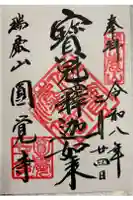 奉拝 令和八年二月廿四日
寶冠釋迦如来
瑞鹿山 圓覚寺